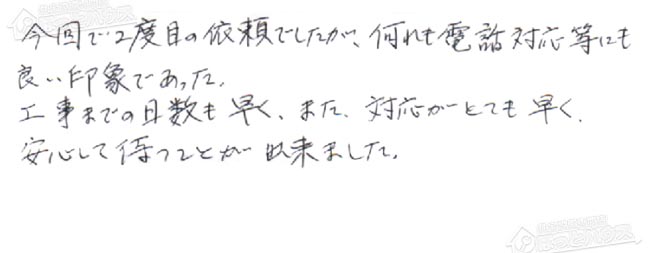 今回で2度目の依頼でしたが、何れも電話対応等にも
良い印象であった。
工事までの日数も早く、また、対応がとても早く、
安心して待つことが出来ました。